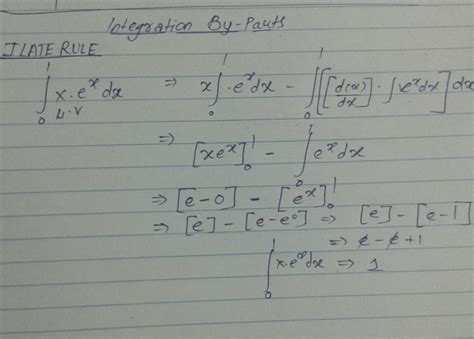 Integration By-Pauts
ILATE RULE
∫₀¹ x·eˣ dx ⇒ x∫₀¹ ·eˣ dx − ∫₀¹ [[d(x)/dx] · ∫eˣ dx] dx
⇒ [xeˣ]₀¹ − ∫₀¹ eˣ dx
⇒ [e−0] − [eˣ]₀¹
⇒ [e] − [e−e⁰] ⇒ [e] − [e−1]
⇒ e − e + 1
∫₀¹ x·eˣ dx ⇒ 1